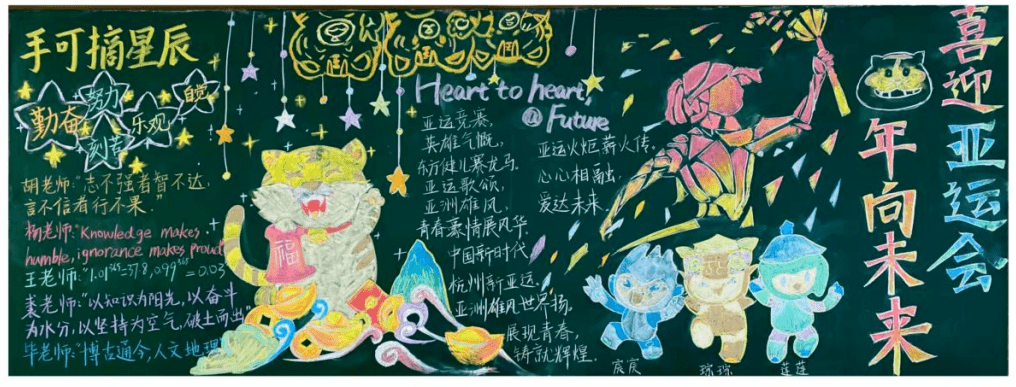 手可摘星辰
勤奋
努力
刻苦
乐观
自觉
胡老师:“志不强者智不达,
言不信者行不果.”
杨老师:“Knowledge makes
humble, ignorance makes proud
王老师:“1.01³⁶⁵=37.8, 0.99³⁶⁵=0.03
裘老师:“以知识为阳光,以奋斗
为水分,以坚持为空气,破土而出”
毕老师:“博古通今,人文地理
福
Heart to heart,
@ Future
亚运竞赛,
英雄气慨,
东方健儿赛龙马.
亚运歌颂,
亚洲雄风,
青春豪情展风华.
中国新时代
杭州新亚运.
亚洲雄风世界扬.
展现青春,
铸就辉煌.
亚运火炬薪火传.
心心相融,
爱达未来.
宸宸
琮琮
莲莲
喜迎亚运会
年向未来